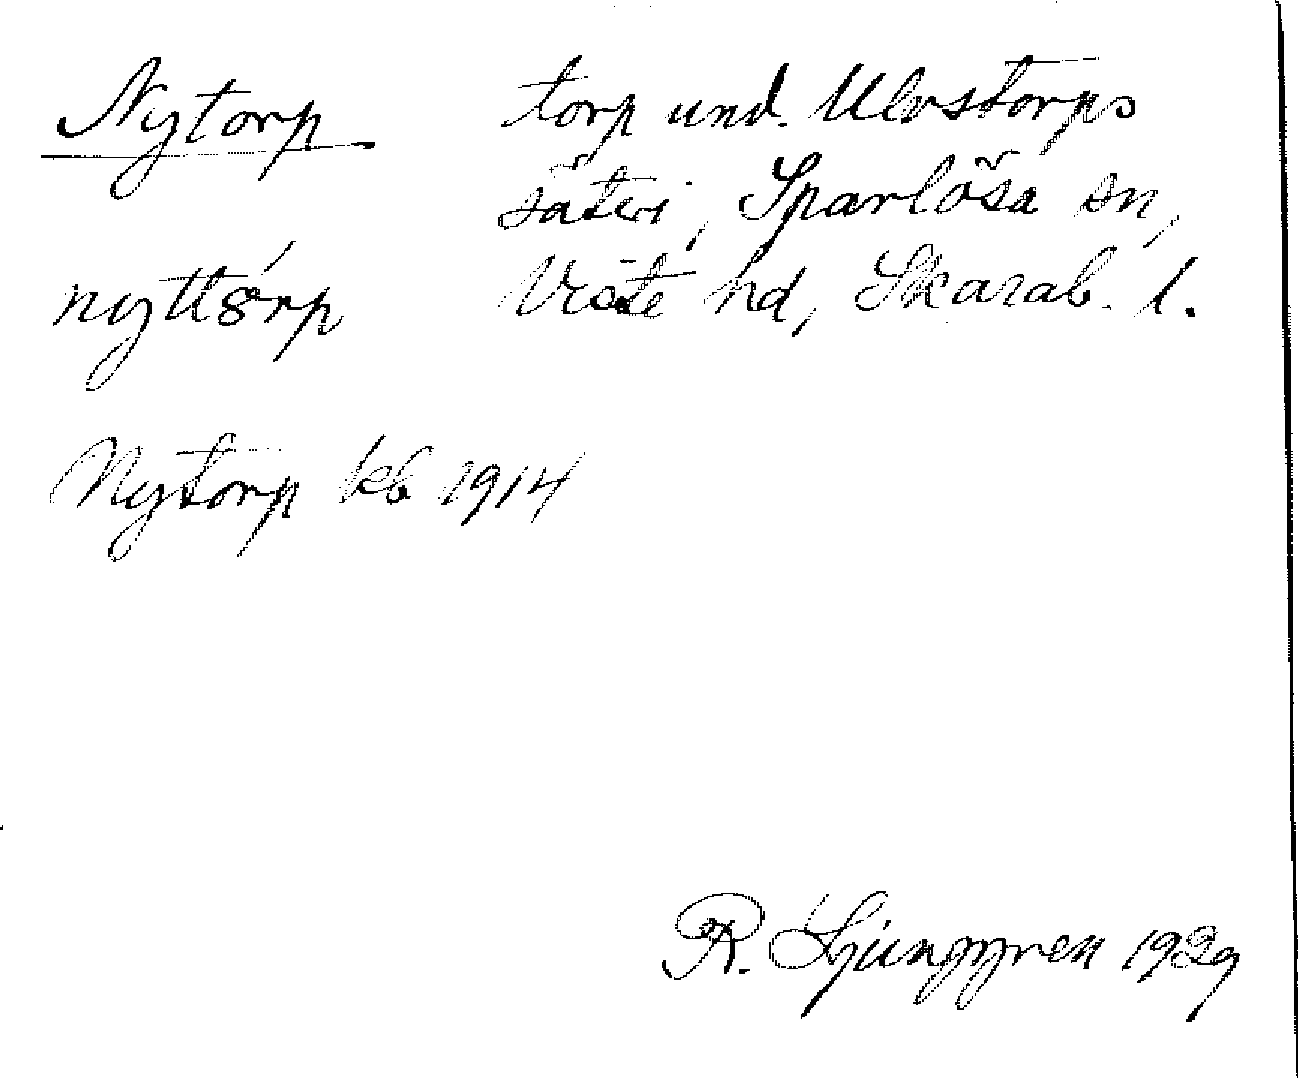 Nytorp torp und. Ulvstorps
säteri, Sparlösa sn,
nyttórp Viste hd, Skarab. l.
Nytorp kb 1914
R. Ljunggren 1929